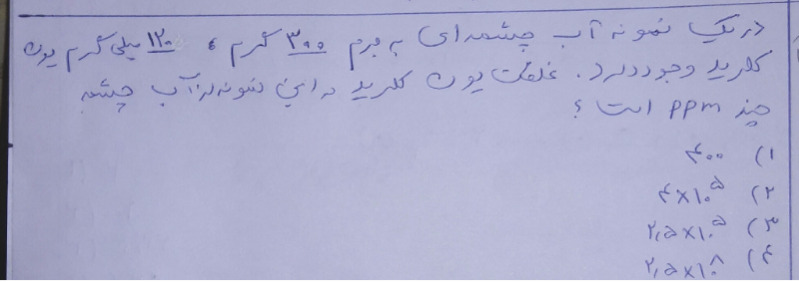 در یک نمونه آب چشمه‌ای به جرم ۳۰۰ گرم ، ۱۲۰ میلی گرم یون
کلرید وجود دارد. غلظت یون کلرید در این نمونه از آب چشمه
چند ppm است ؟
۱) ۴۰۰
۲) ۴×۱۰^۵
۳) ۲٫۵×۱۰^۵
۴) ۲٫۵×۱۰^۸